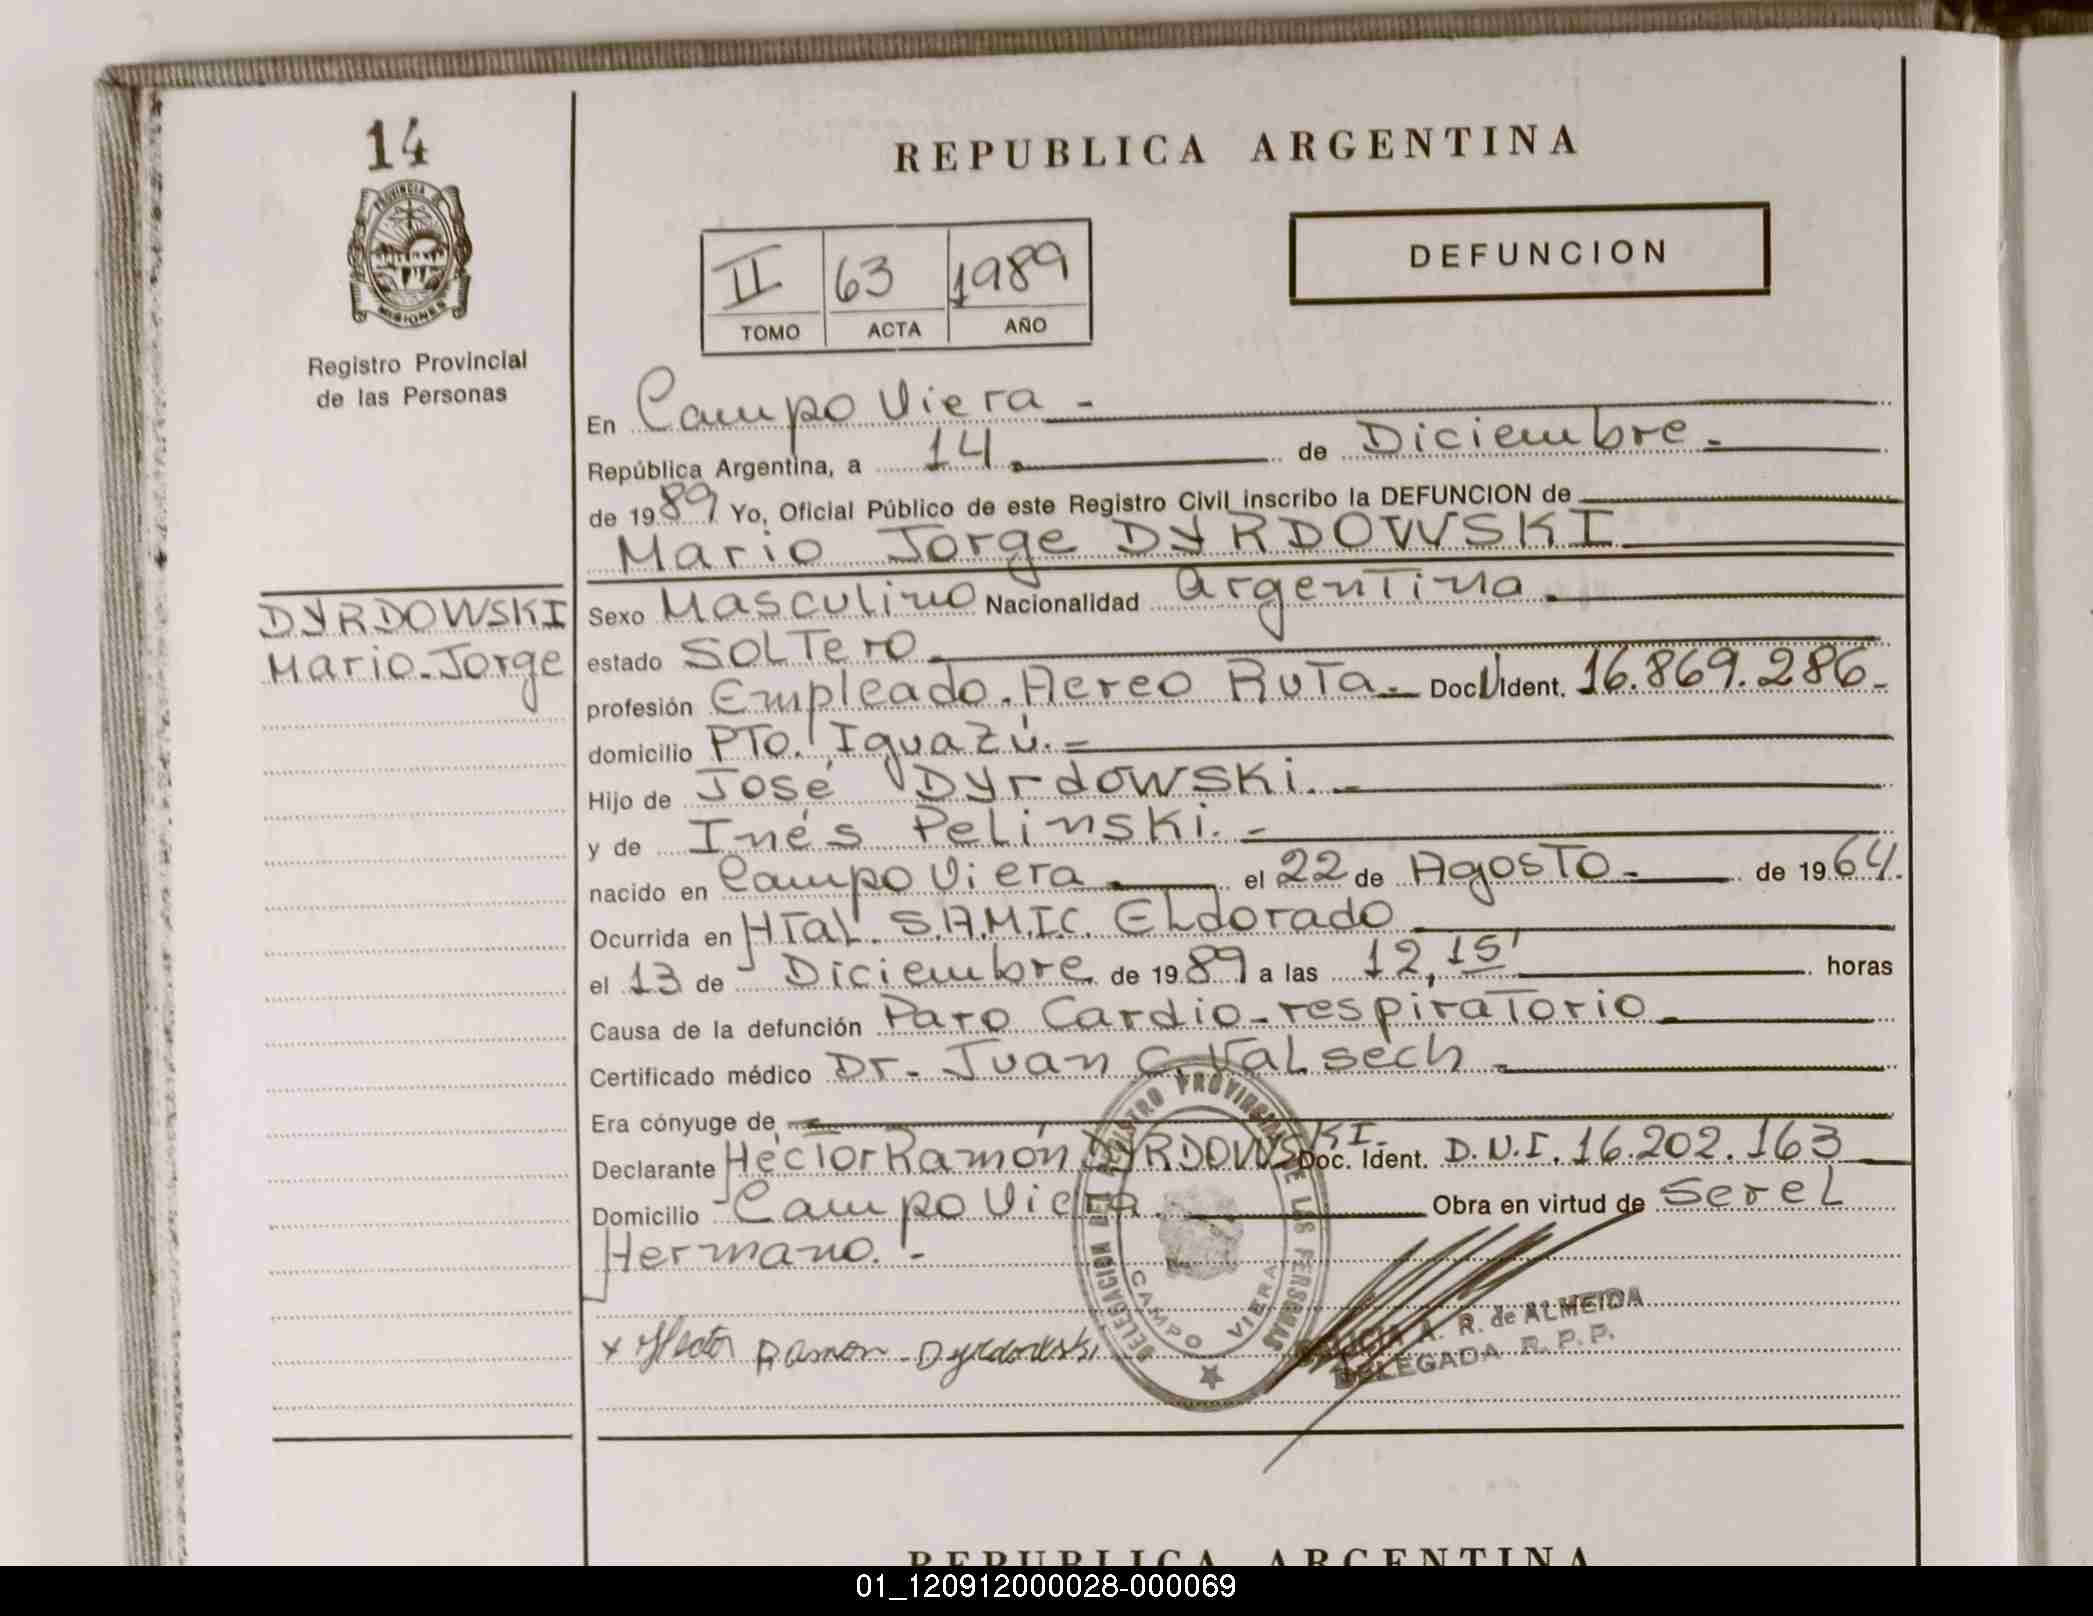 14
PROVINCIA
MISIONES
Registro Provincial
de las Personas
DYRDOWSKI
Mario-Jorge
REPUBLICA ARGENTINA
DEFUNCION
II 63 1989
TOMO ACTA AÑO
En Campo Viera -
República Argentina, a 14. de Diciembre.-
de 1989 Yo, Oficial Público de este Registro Civil inscribo la DEFUNCION de
Mario Jorge DYRDOWSKI
Sexo Masculino Nacionalidad Argentina.
estado SOLTero
profesión Empleado. Aereo Ruta.- Doc Ident. 16.869.286-
domicilio PTO. Iguazú.-
Hijo de José Dyrdowski.-
y de Inés Pelinski.-
nacido en Campo Viera el 22 de Agosto- de 1964.
Ocurrida en HTal. S.A.M.I.C. ELdorado
el 13 de Diciembre de 1989 a las 12,15' horas
Causa de la defunción Paro Cardio-respiratorio
Certificado médico Dr- Juan C. Valsech -
Era cónyuge de
Declarante Héctor Ramón DYRDOWSKI.- Doc. Ident. D.N.I. 16.202.163
Domicilio Campo Viera. Obra en virtud de Serel
Hermano.-
x Hector Ramon Dyrdowski
DELEGACION DEL REGISTRO PROVINCIAL DE LAS PERSONAS
CAMPO VIERA
A. R. de ALMEIDA
DELEGADA R. P. P.
REPUBLICA ARGENTINA
01_120912000028-000069